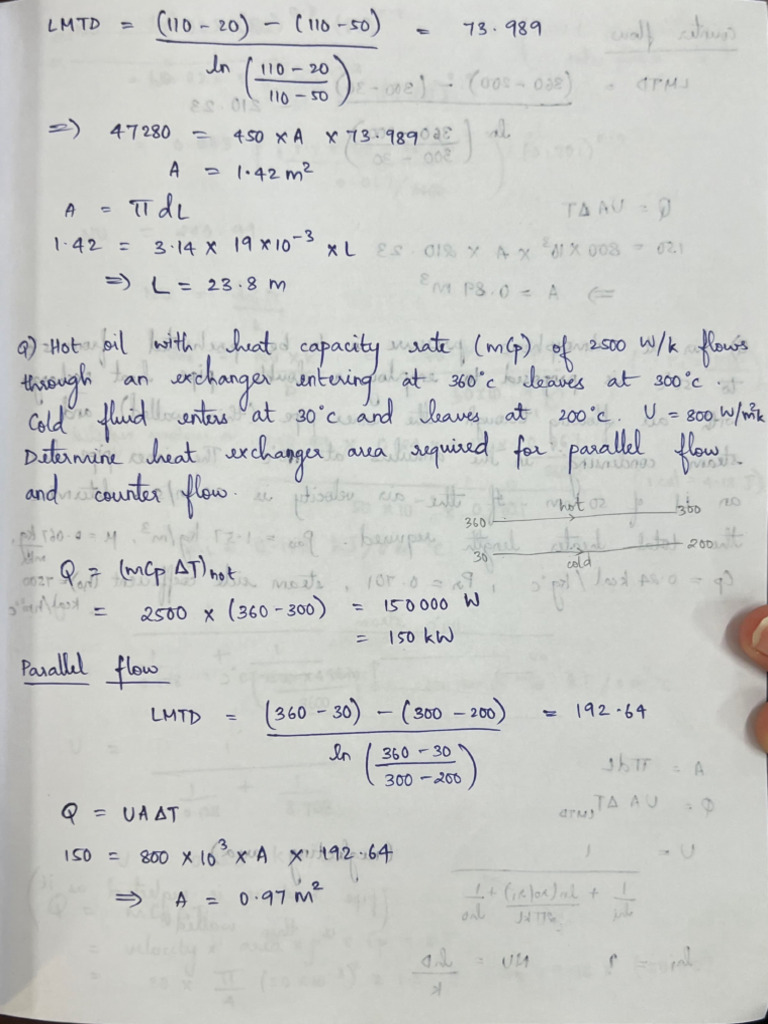 LMTD = (110 - 20) - (110 - 50) / ln (110 - 20 / 110 - 50) = 73.989
=> 47280 = 450 × A × 73.989
A = 1.42 m²
A = π dL
1.42 = 3.14 × 19 × 10⁻³ × L
=> L = 23.8 m
Q) Hot oil with heat capacity rate (mCp) of 2500 W/k flows
through an exchanger entering at 360°c leaves at 300°c.
Cold fluid enters at 30°c and leaves at 200°c. U = 800 W/m²k
Determine heat exchanger area required for parallel flow
and counter flow.
hot
360 300
30 200
cold
Q = (mCp ΔT)hot
= 2500 × (360 - 300) = 150000 W
= 150 kW
Parallel flow
LMTD = (360 - 30) - (300 - 200) / ln (360 - 30 / 300 - 200) = 192.64
Q = UAΔT
150 = 800 × 10³ × A × 192.64
=> A = 0.97 m²